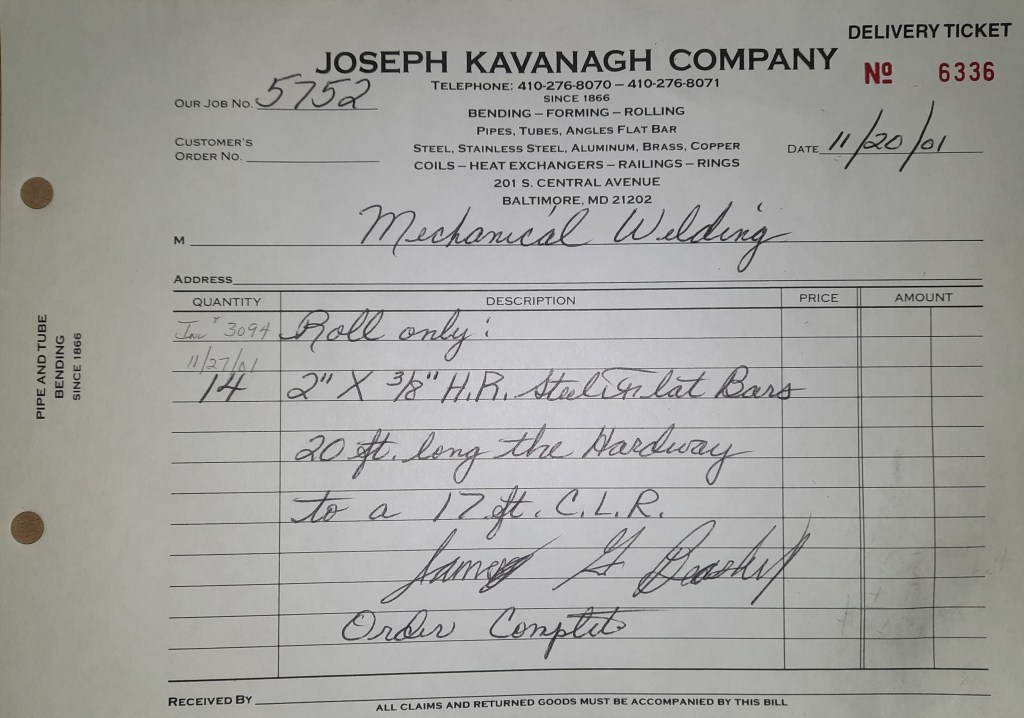 DELIVERY TICKET
JOSEPH KAVANAGH COMPANY
Nº 6336
TELEPHONE: 410-276-8070 – 410-276-8071
SINCE 1866
OUR JOB NO. 5752
BENDING – FORMING – ROLLING
PIPES, TUBES, ANGLES FLAT BAR
CUSTOMER'S
ORDER NO.
STEEL, STAINLESS STEEL, ALUMINUM, BRASS, COPPER
DATE 11/20/01
COILS – HEAT EXCHANGERS – RAILINGS – RINGS
201 S. CENTRAL AVENUE
BALTIMORE, MD 21202
M Mechanical Welding
ADDRESS
QUANTITY DESCRIPTION PRICE AMOUNT
Inv # 3094 Roll only:
11/27/01
14 2" X 3/8" H.R. Steel Flat Bars
20 ft. long the Hardway
to a 17 ft. C.L.R.
James G
Order Complete
RECEIVED BY
ALL CLAIMS AND RETURNED GOODS MUST BE ACCOMPANIED BY THIS BILL
PIPE AND TUBE
BENDING
SINCE 1866